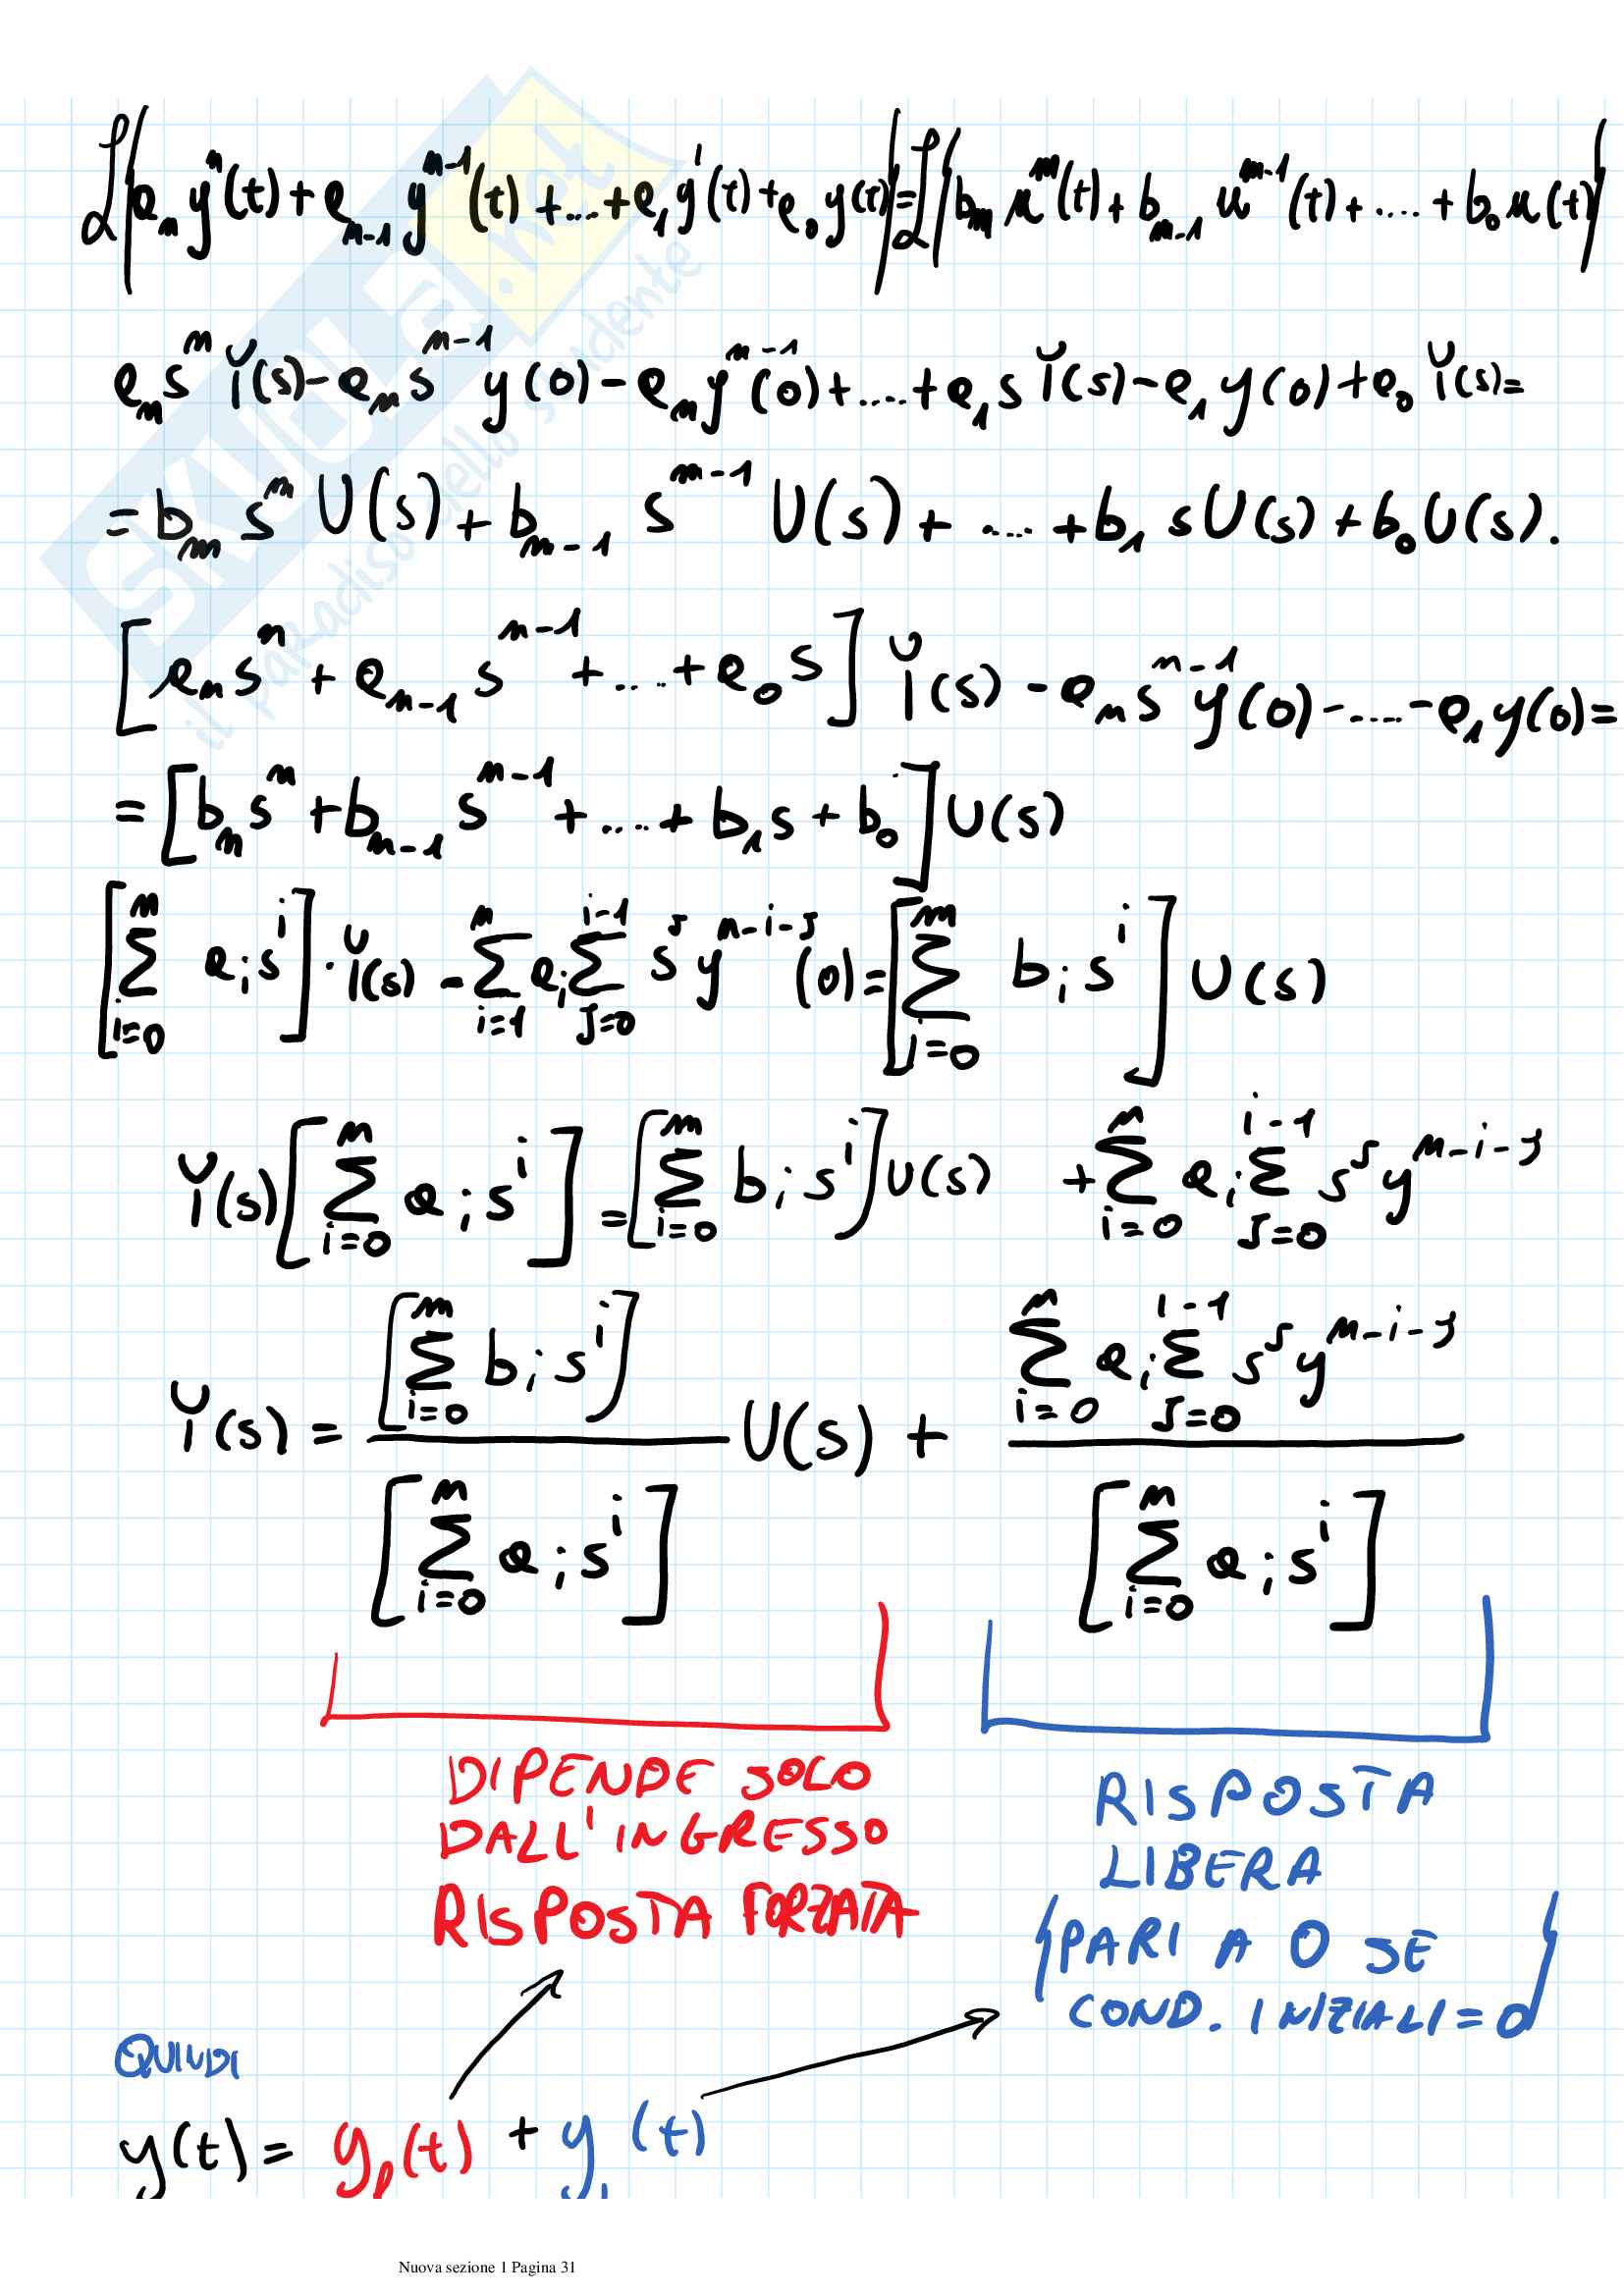 ℒ{aₙ yⁿ(t) + aₙ₋₁ yⁿ⁻¹(t) + .... + a₁ y'(t) + a₀ y(t)} = ℒ{bₘ uᵐ(t) + bₘ₋₁ uᵐ⁻¹(t) + .... + b₀ u(t)}
aₙ sⁿ Y(s) - aₙ sⁿ⁻¹ y(0) - aₙ yⁿ⁻¹(0) + .... + a₁ s Y(s) - a₁ y(0) + a₀ Y(s) =
= bₘ sᵐ U(s) + bₘ₋₁ sᵐ⁻¹ U(s) + .... + b₁ s U(s) + b₀ U(s).
[aₙ sⁿ + aₙ₋₁ sⁿ⁻¹ + .... + a₀ s] Y(s) - aₙ sⁿ⁻¹ y(0) - .... - a₁ y(0) =
= [bₙ sⁿ + bₙ₋₁ sⁿ⁻¹ + .... + b₁ s + b₀] U(s)
[∑_{i=0}^{n} aᵢ sⁱ] · Y(s) - ∑_{i=1}^{n} aᵢ ∑_{J=0}^{i-1} s^J y^{n-i-J}(0) = [∑_{i=0}^{m} bᵢ sⁱ] U(s)
Y(s) [∑_{i=0}^{n} aᵢ sⁱ] = [∑_{i=0}^{m} bᵢ sⁱ] U(s) + ∑_{i=0}^{n} aᵢ ∑_{J=0}^{i-1} s^J y^{n-i-J}
Y(s) = [∑_{i=0}^{m} bᵢ sⁱ] / [∑_{i=0}^{n} aᵢ sⁱ] U(s) + ∑_{i=0}^{n} aᵢ ∑_{J=0}^{i-1} s^J y^{n-i-J} / [∑_{i=0}^{n} aᵢ sⁱ]
DIPENDE SOLO
DALL'INGRESSO
RISPOSTA FORZATA
RISPOSTA
LIBERA
{PARI A 0 SE
COND. INIZIALI = 0}
QUINDI
y(t) = y (t) + y (t)
SKUOLA.net
il paradiso dello studente
Nuova sezione 1 Pagina 31